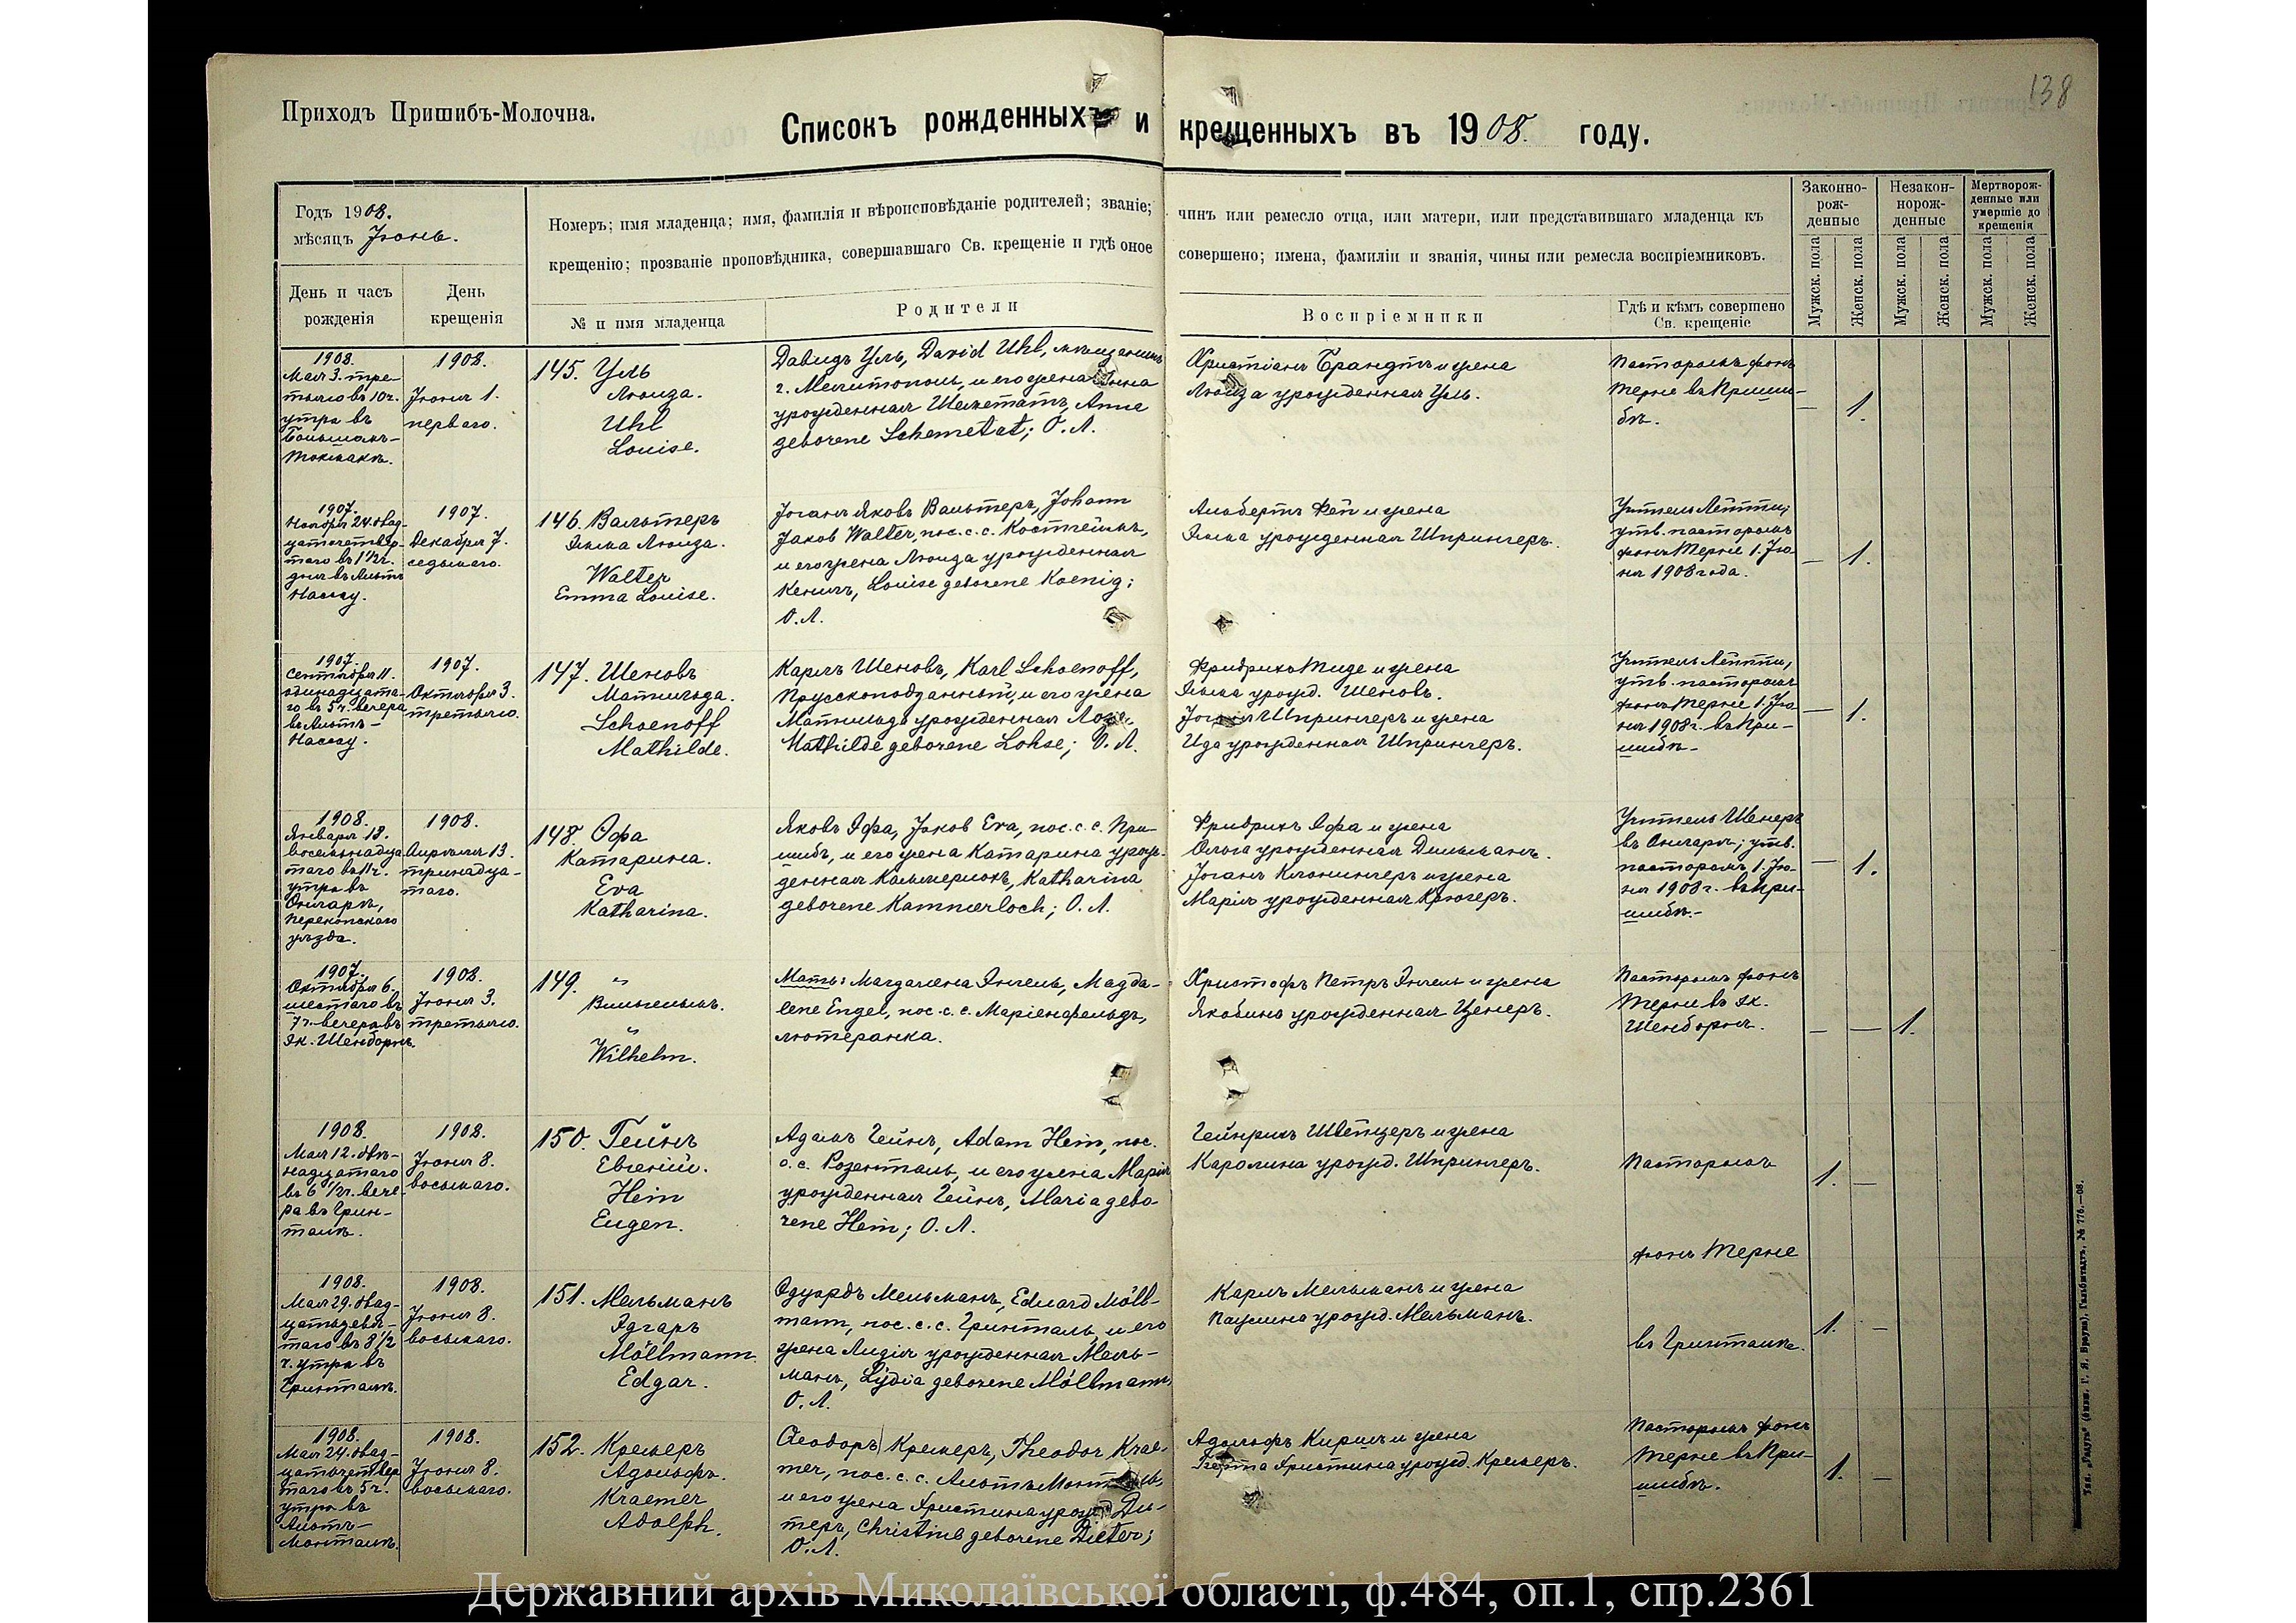 138
Приходъ Пришибъ-Молочна.
Списокъ рожденныхъ и крещенныхъ въ 1908. году.
Годъ 1908.
мѣсяцъ Іюнь.
День и часъ рожденія
День крещенія
Номеръ; имя младенца; имя, фамилія и вѣроисповѣданіе родителей; званіе; чинъ или ремесло отца, или матери, или представившаго младенца къ
крещенію; прозваніе проповѣдника, совершавшаго Св. крещеніе и гдѣ оное совершено; имена, фамиліи и званія, чины или ремесла воспріемниковъ.
№ и имя младенца
Родители
Воспріемники
Гдѣ и кѣмъ совершено
Св. крещеніе
Законно-
рож-
денные
Незакон-
норож-
денные
Мертворож-
денные или
умершіе до
крещенія
Мужск. пола
Женск. пола
Мужск. пола
Женск. пола
Мужск. пола
Женск. пола
1908.
Мая 3. тре-
тьяго въ 10 ч.
утра въ
Большомъ-
Токмакѣ.
1908.
Іюня 1.
перваго.
145. Уль
Луиза.
Uhl
Louise.
Давидъ Уль, David Uhl, мѣщанинъ
г. Мелитополь, и его жена Анна
урожденная Шеметатъ, Anna
geborene Schemetat; О. Л.
Христіанъ Брандтъ и жена
Луиза урожденная Уль.
Пасторомъ фонъ
Терне въ Приши-
бѣ.
— 1.
1907.
Ноября 24. двад-
цатьчетвер-
таго въ 1 1/2 ч.
дня въ Альтъ
Нассау.
1907.
Декабря 7.
седьмаго.
146. Вальтеръ
Эмма Луиза.
Walter
Emma Louise.
Іоганъ Яковъ Вальтеръ, Johann
Jakob Walter, пос. с. с. Костгеймъ,
и его жена Луиза урожденная
Кенигъ, Louise geborene Koenig;
О. Л.
Альбертъ Фей и жена
Эмма урожденная Шпрингеръ.
Учитель Леппи,
утв. пасторомъ
фонъ Терне 1. Ію-
ня 1908 года.
— 1.
1907.
Сентября 11.
одинадцата-
го въ 5 ч. вечера
въ Альтъ-
Нассау.
1907.
Октября 3.
третьяго.
147. Шеновъ
Матильда.
Schoenoff
Mathilde.
Карлъ Шеновъ, Karl Schoenoff,
Прусскоподданный, и его жена
Матильда урожденная Лозе,
Mathilde geborene Lohse; О. Л.
Фридрихъ Тиде и жена
Эмма урожд. Шеновъ.
Іоганъ Шпрингеръ и жена
Ида урожденная Шпрингеръ.
Учитель Леппи,
утв. пасторомъ
фонъ Терне 1. Ію-
ня 1908 г. въ При-
шибѣ-
— 1.
1908.
Января 18.
восемьнадца
таго въ 11 ч.
утра въ
Онгарѣ,
Перекопскаго
уѣзда.
1908.
Апрѣля 13.
тринадца-
таго.
148. Эфа
Катарина.
Eva
Katharina.
Яковъ Эфа, Jakob Eva, пос. с. с. При-
шибъ, и его жена Катарина урож-
денная Каммерлохъ, Katharina
geborene Kammerloch; О. Л.
Фридрихъ Эфа и жена
Ольга урожденная Дильманъ.
Іоганъ Клонингеръ и жена
Марія урожденная Крюгеръ.
Учитель Шенеръ
въ Онгарѣ; утв.
пасторомъ 1. Ію-
ня 1908 г. въ При-
шибѣ.-
— 1.
1907.
Октября 6.
шестаго въ
7 ч. вечера въ
эк. Шенборнъ.
1908.
Іюня 3.
третьяго.
149. "
Вильгельмъ.
"
Wilhelm.
Мать: Магдалена Энгель, Magda-
lene Engel, пос. с. с. Маріенфельдъ,
лютеранка.
Христофъ Петръ Энгель и жена
Якобина урожденная Ценеръ.
Пасторомъ фонъ
Терне въ эк.
Шенборнъ.
— — 1.
1908.
Мая 12. двѣ-
надцатаго
въ 6 1/2 ч. вече-
ра въ Грин-
талѣ.
1908.
Іюня 8.
восьмаго.
150. Гейнъ
Евгеній.
Hein
Eugen.
Адамъ Гейнъ, Adam Hein, пос.
с. с. Розенталь, и его жена Марія
урожденная Гейнъ, Maria gebo-
rene Hein; О. Л.
Гейнрихъ Швейцеръ и жена
Каролина урожд. Шпрингеръ.
Пасторомъ
1. —
фонъ Терне
1908.
Мая 29. двад-
цатьдевя-
таго въ 8 1/2
ч. утра въ
Гринталѣ.
1908.
Іюня 8.
восьмаго.
151. Мельманъ
Эдгаръ
Möllmann
Edgar.
Эдуардъ Мельманъ, Eduard Möll-
mann, пос. с. с. Гринталь, и его
жена Лидія урожденная Мель-
манъ, Lydia geborene Möllmann,
О. Л.
Карлъ Мельманъ и жена
Паулина урожд. Мельманъ.
въ Гринталѣ.
1. —
1908.
Мая 24. двад-
цатьчетвер
таго въ 5 ч.
утра въ
Альтъ-
Монталѣ.
1908.
Іюня 8.
восьмаго.
152. Кремеръ
Адольфъ.
Kraemer
Adolph.
Ѳеодоръ Кремеръ, Theodor Krae-
mer, пос. с. с. Альтъ Монталь,
и его жена Христина урожд. Ди-
теръ, Christine geborene Dieter;
О. Л.
Адольфъ Кирш и жена
Берта Христина урожд. Кремеръ.
Пасторомъ фонъ
Терне въ При-
шибѣ.
1. —
Державний архів Миколаївської області, ф.484, оп.1, спр.2361